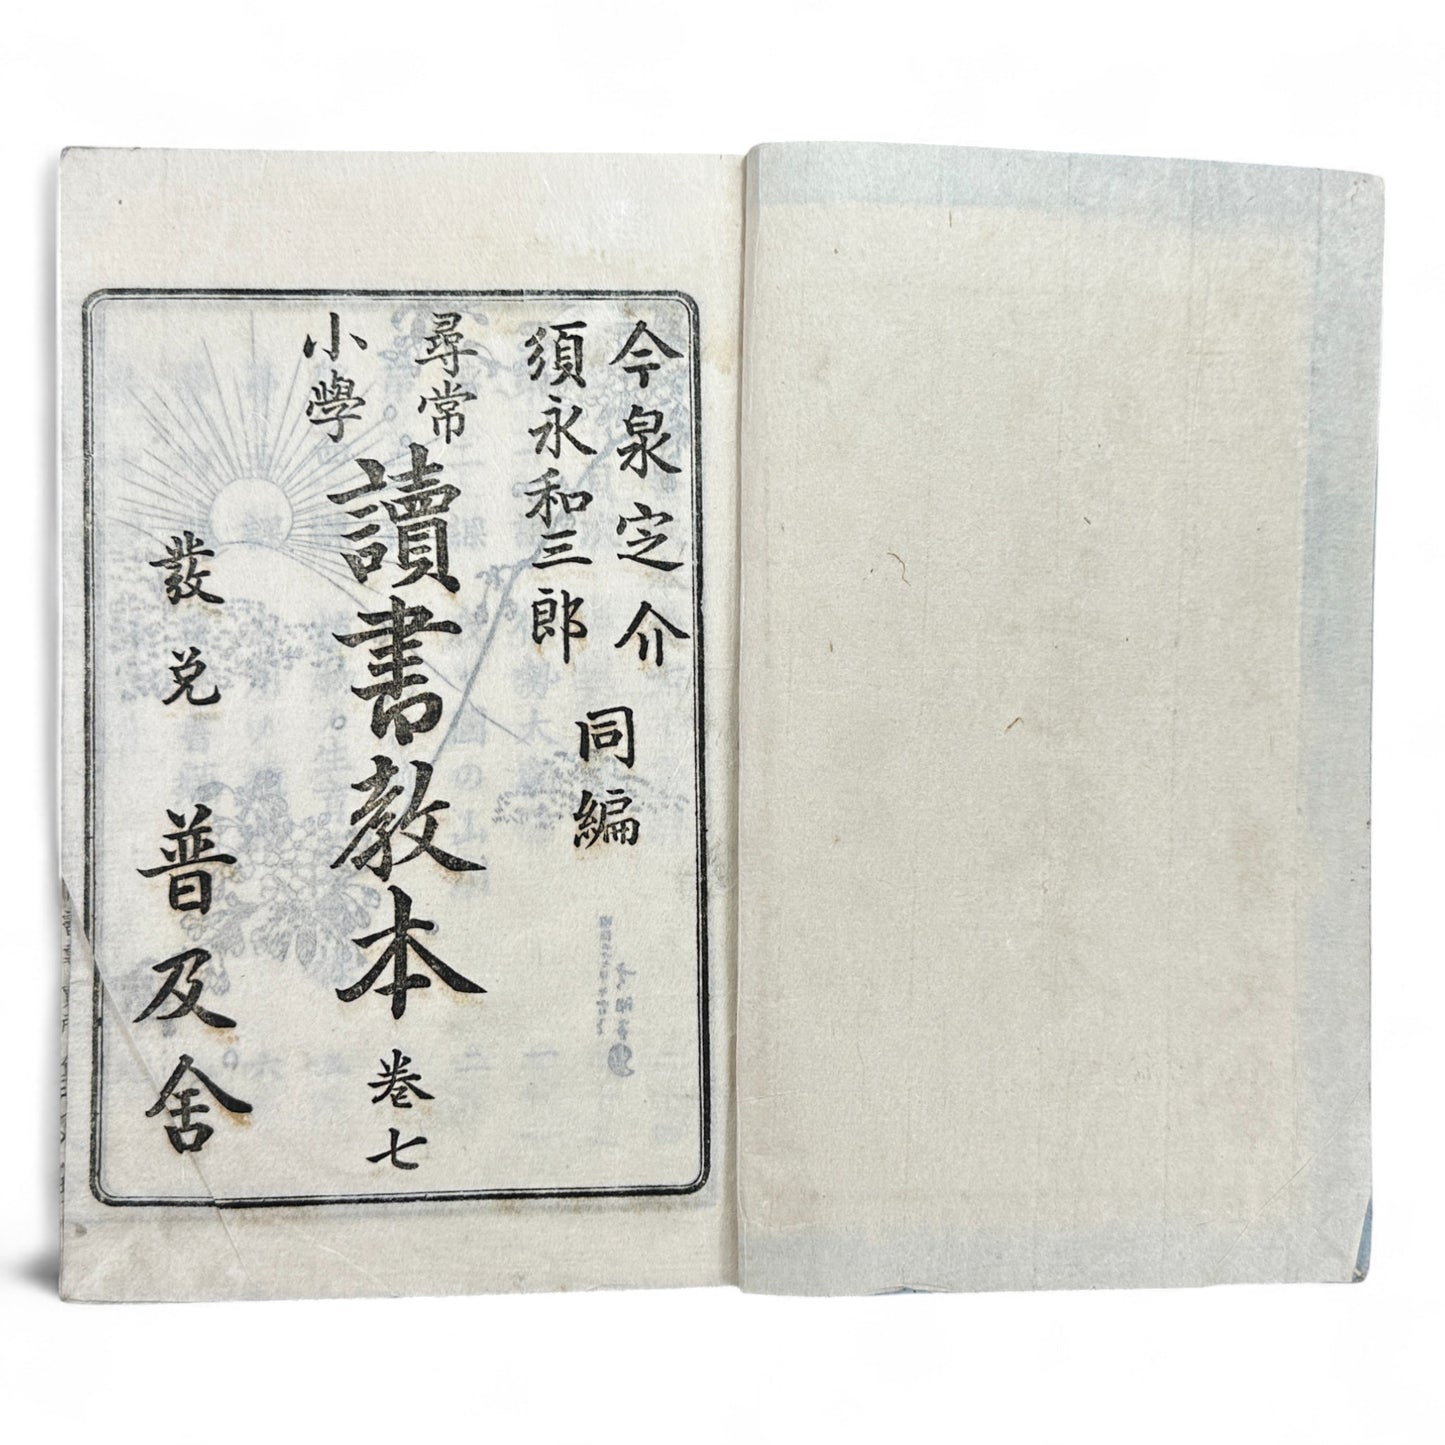 今泉定介
須永和三郎
同編
尋常
小學
讀書教本
卷七
發兌
普及舍